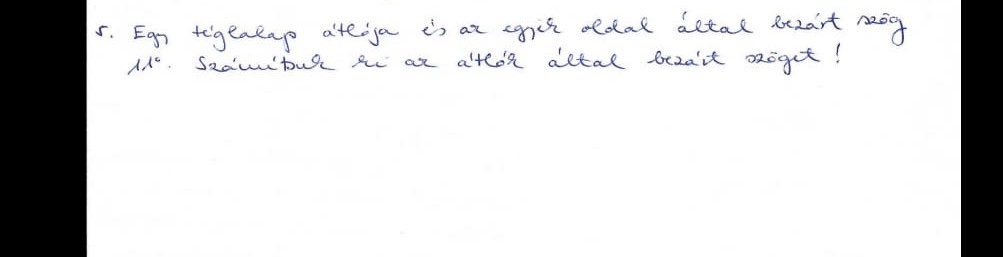 5. Egy téglalap átlója és az egyik oldal által bezárt szög
11°. Számítsuk ki az átlók által bezárt szöget!